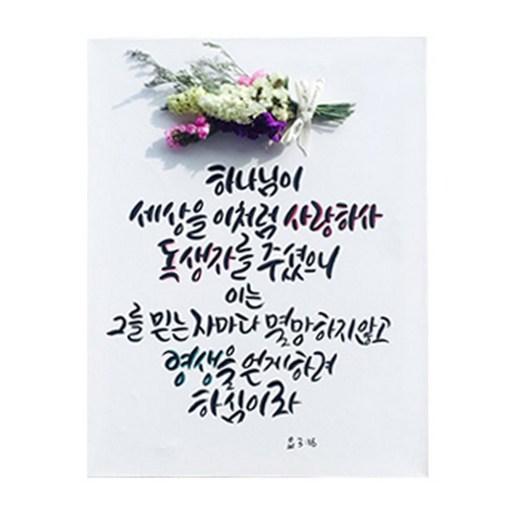 하나님이
세상을 이처럼 사랑하사
독생자를 주셨으니
이는
그를 믿는 자마다 멸망하지 않고
영생을 얻게 하려
하심이라
요 3:16